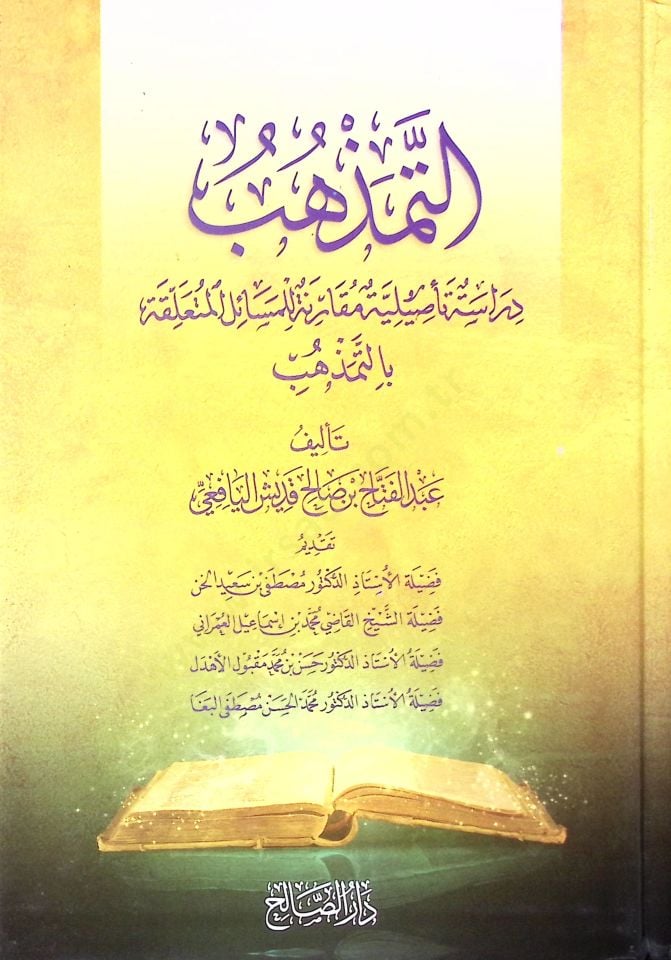 التَّمَذْهُبُ
دِرَاسَةٌ تَأْصِيْلِيَّةٌ مُقَارِنَةٌ لِلْمَسَائِلِ الْمُتَعَلِّقَةِ
بِالتَّمَذْهُبِ
تَأْلِيفُ
عَبْدُ الفَتَّاحِ بْنِ صَالِحِ قُدَيْشِ اليَافِعِيِّ
تَقْدِيمُ
فَضِيْلَةُ الأُسْتَاذِ الدُّكْتُورِ مُصْطَفَى بْنِ سَعِيدِ الخن
فَضِيْلَةُ الشَّيْخِ القَاضِي مُحَمَّدِ بْنِ إِسْمَاعِيلِ العُمْرَانِي
فَضِيْلَةُ الأُسْتَاذِ الدُّكْتُورِ حَسَنِ بْنِ مُحَمَّدِ مَقْبُولِ الأَهْدَلِ
فَضِيْلَةُ الأُسْتَاذِ الدُّكْتُورِ مُحَمَّدِ الحَسَنِ مُصْطَفَى البُغَا
دَارُ الصَّالِحِ